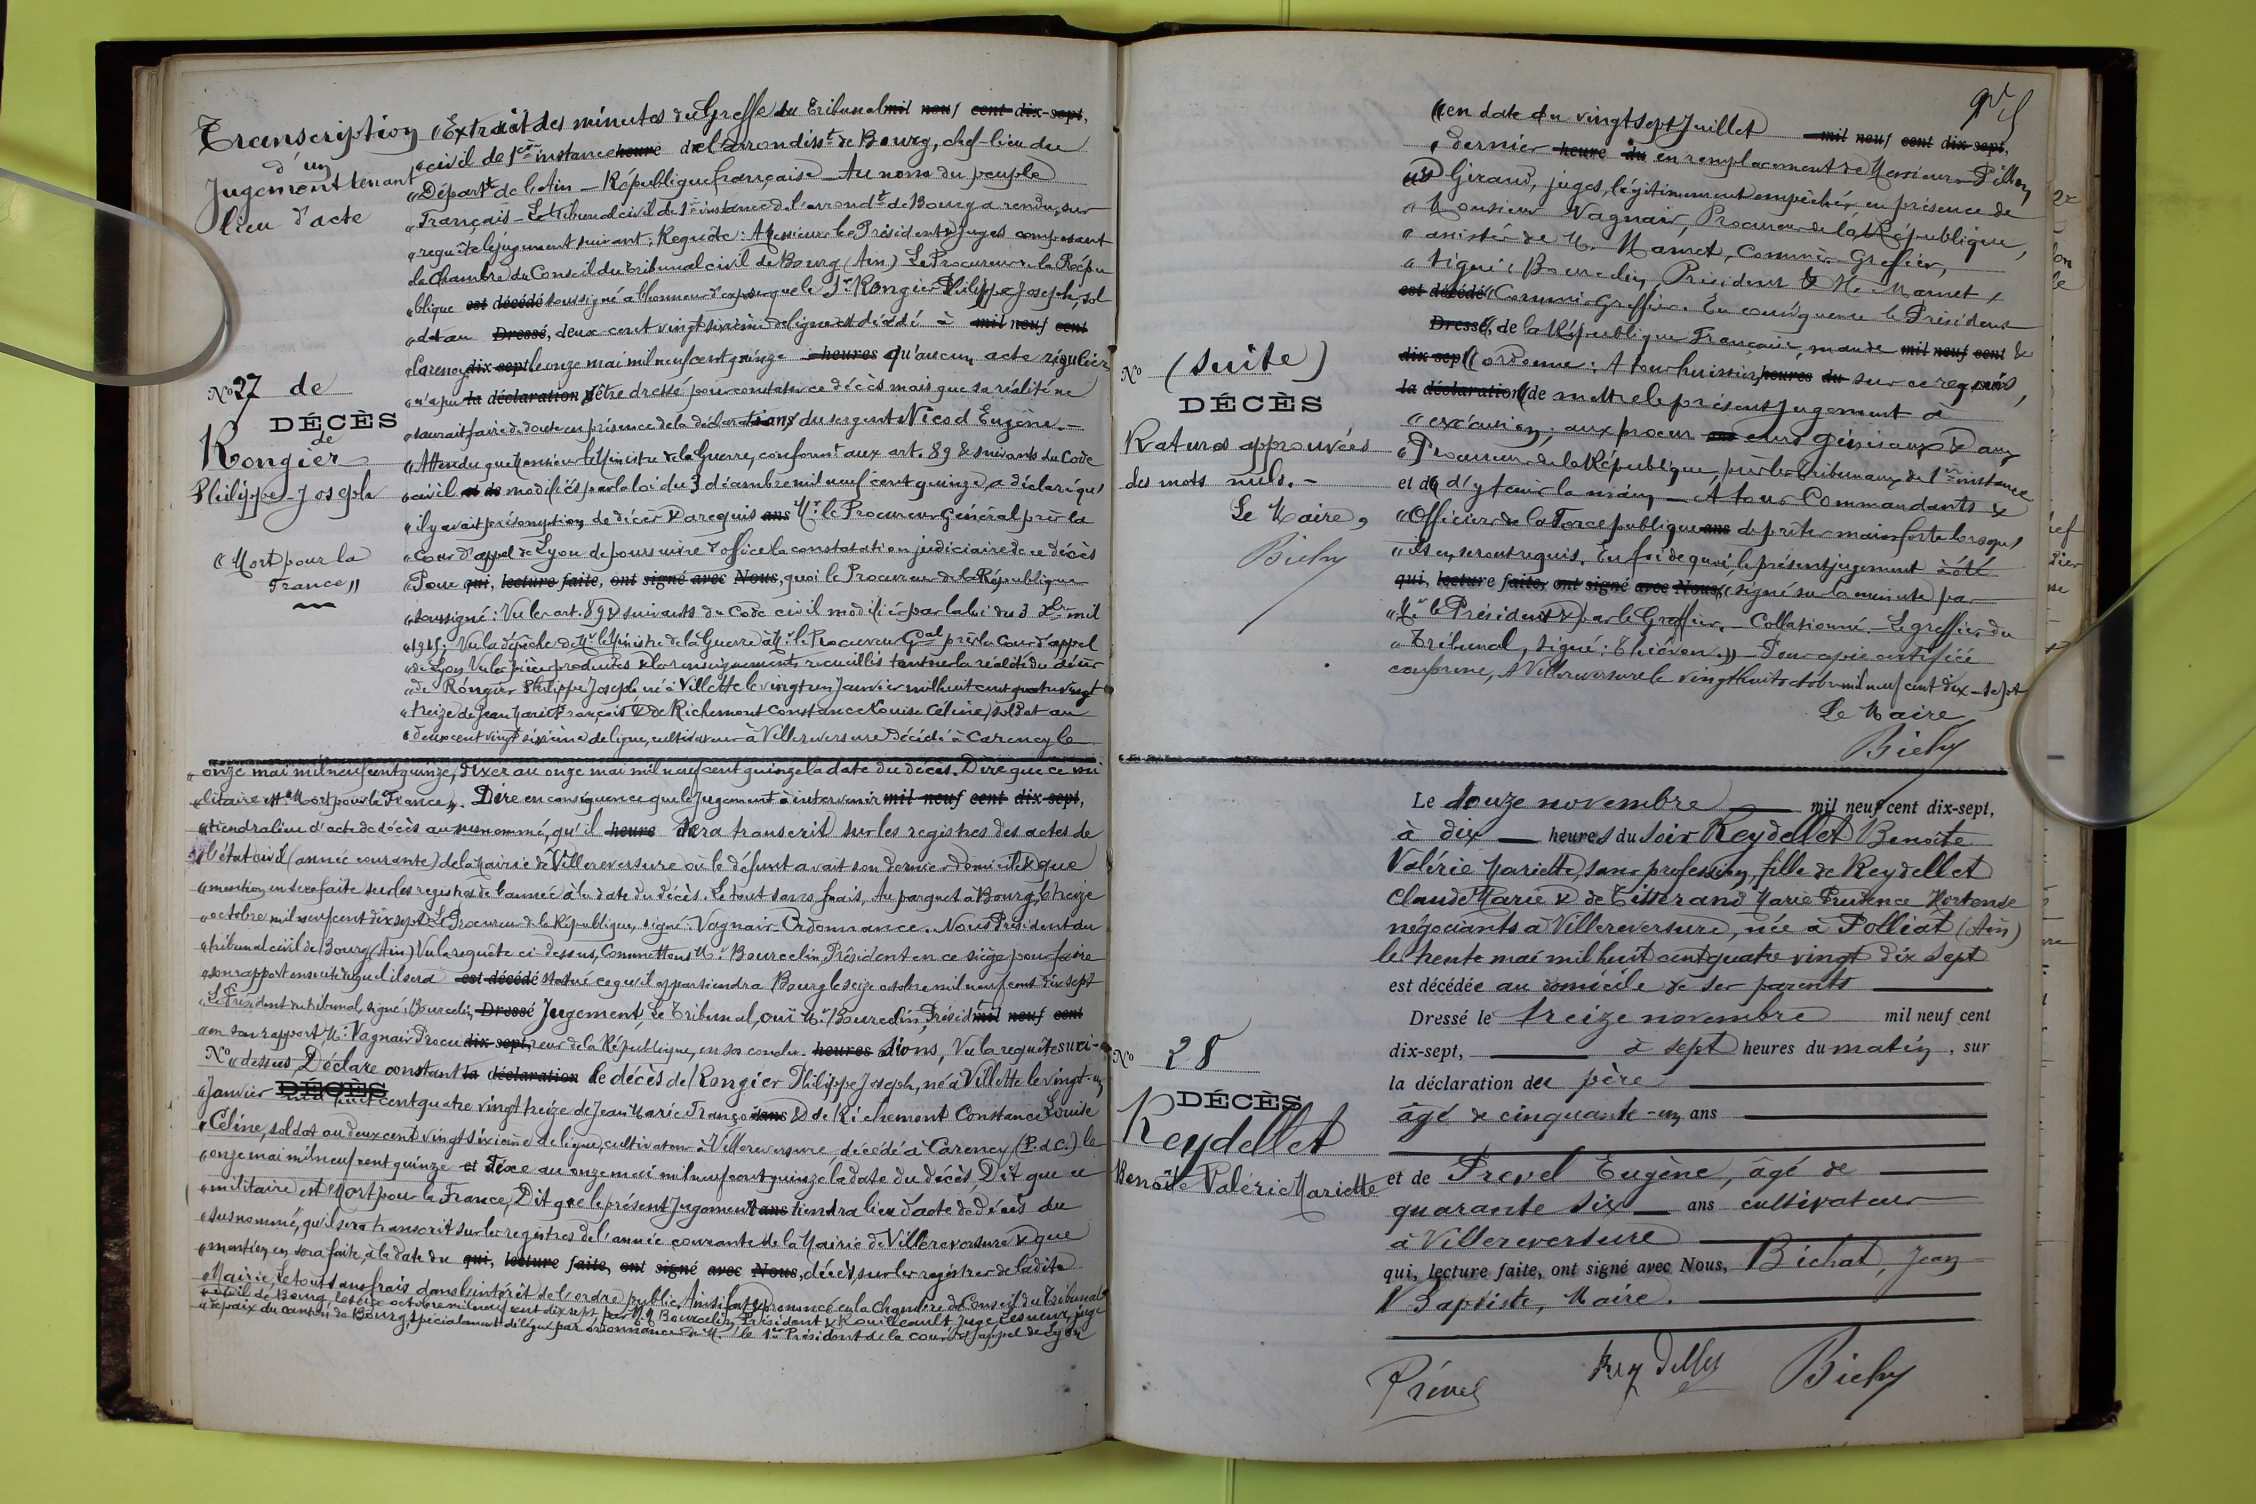 Transcription
d'un
Jugement tenant
lieu d'acte
N° 27 de
DÉCÈS
de
Rongier
Philippe-Joseph
"Mort pour la
France"
"Extrait des minutes du Greffe du Tribunal mil neuf cent dix-sept,
"civil de 1ère instance heure de l'arrondisst de Bourg, chef-lieu du
"Départt de l'Ain - République française - Au nom du peuple
"Français - Le Tribunal civil de 1ère instance de l'arrondt de Bourg a rendu, sur
"requête le jugement suivant: Requête: A Messieurs le Président & Juges composant
la Chambre du Conseil du Tribunal civil de Bourg (Ain) Le Procureur de la Répu
blique est décédé soussigné a l'honneur d'exposer que le Sr Rongier Philippe Joseph, sol
"dat au Dressé, deux cent vingt sixième de ligne est décédé à mil neuf cent
Carency dix-sept le onze mai mil neuf cent quinze heures qu'aucun acte régulier
"n'a pu la déclaration être dressé pour constater ce décès mais que sa réalité ne
"saurait faire de doute en présence de la déclarations ans du sergent Nicod Eugène.-
"Attendu que Monsieur le Ministre de la Guerre, conformt aux art. 89 & suivants du Code
"civil et de modifiés par la loi du 3 décembre mil neuf cent quinze, a déclaré qu'
"il y avait présomption de décès & a requis ans Mr. le Procureur Général près la
"Cour d'appel de Lyon de poursuivre d'office la constatation judiciaire de ce décès
"Pour qui, lecture faite, ont signé avec Nous, quoi le Procureur de la République
"soussigné: Vu les art. 89 & suivants du Code civil modifiés par la loi du 3 Xbre mil
"1915; Vu la dépêche de Mr le Ministre de la Guerre à Mr. le Procureur Gal près la Cour d'appel
"de Lyon Vu les pièces produites & les renseignements recueillis tant sur la réalité du décès
"de Rongier Philippe Joseph, né à Villette le vingt un Janvier mil huit cent quatre vingt
"treize de Jean Marie François & de Richemont Constance Louise Céline, soldat au
"deux cent vingt sixième de ligne, cultivateur à Villereversure Décédé à Carency le
"onze mai mil neuf cent quinze, Fixer au onze mai mil neuf cent quinze la date du décès. Dire que ce mi
"litaire est "Mort pour la France". Dire en conséquence que le Jugement à intervenir mil neuf cent dix-sept,
"tiendra lieu d'acte de décès au susnommé, qu'il heure du sera transcrit sur les registres des actes de
"l'état civil (année courante) de la Mairie de Villereversure où le défunt avait son dernier domicile & que
"mention en sera faite sur les registres de l'année à la date du décès. Le tout sans frais, Au parquet à Bourg, le treize
"octobre mil neuf cent dix sept. Le Procureur de la République, signé: Vagnair - Ordonnance. Nous Président du
"tribunal civil de Bourg (Ain) Vu la requête ci-dessus, Commettons Mr. Bourcelin, Président en ce siège pour faire
"son rapport ensuite duquel il sera est décédé statué ce qu'il appartiendra Bourg le seize octobre mil neuf cent dix sept
"Le Président du tribunal, signé: Bourcelin Dressé Jugement, Le Tribunal, ouï Mr Bourcelin, Présid mil neuf cent
"en son rapport, Mr. Vagnair Procu dix-sept, reur de la République, en ses conclu- heures sions, Vu la requête sus ci-
N° "dessus, Déclare constant la déclaration le décès de Rongier Philippe Joseph, né à Villette le vingt-un
"Janvier DÉCÈS mil huit cent quatre vingt treize de Jean Marie François ans & de Richemont Constance Louise
"Céline, soldat au deux cent vingt sixième de ligne, cultivateur à Villereversure décédé à Carency (P. d. C.) le
"onze mai mil neuf cent quinze et Fixe au onze mai mil neuf cent quinze la date du décès, Dit que ce
"militaire est Mort pour la France, Dit que le présent Jugement ans tiendra lieu d'acte de décès du
"susnommé, qu'il sera transcrit sur les registres de l'année courante de la Mairie de Villereversure & que
"mention en sera faite, à la date du qui, lecture faite, ont signé avec Nous, décès sur les registres de ladite
"Mairie, Le tout sans frais dans l'intérêt de l'ordre public. Ainsi fait & prononcé en la Chambre du Conseil du Tribunal
"civil de Bourg, le seize octobre mil neuf cent dix sept, par M. M. Bourcelin, Président & Rouilleault, Juge, Lesneur, juge
"de paix du canton de Bourg, spécialement délégué par ordonnance de M. le 1er Président de la cour d'appel de Lyon
N° (suite)
DÉCÈS
Ratures approuvées
des mots nuls.-
Le Maire,
Bichy
"en date du vingt sept Juillet mil neuf cent dix-sept,
"dernier heure du en remplacement de Messieurs Pillon
"& Giraud, juges, légitimement empêchés en présence de
"Monsieur Vagnair, Procureur de la République,
"assisté de Mr. Marnet, Commis-Greffier,
"Signé: Bourcelin, Président & H. Marnet,
est décédé "Commis Greffier. En conséquence le Président
Dressé "de la République Française, mande mil neuf cent &
dix-sept "ordonne: A tous huissiers heures du sur ce requis,
la déclaration "de mettre le présent Jugement à
"exécution; aux procur ans eurs Généraux & aux
"Procureurs de la République, près les Tribunaux de 1ère instance
et de "d'y tenir la main - A tous Commandants &
"Officiers de la Force publique ans de prêter main forte lorsqu'
"ils en seront requis. En foi de quoi, le présent jugement a été
qui, lecture faite, ont signé avec Nous, "signé sur la minute par
"Mr le Président & par le Greffier. - Collationné. - Le greffier du
"Tribunal, signé: Thiévon." - Pour copie certifiée
conforme, A Villereversure le vingt huit octobre mil neuf cent dix-sept
Le Maire
Bichy
N° 28
DÉCÈS
Reydellet
Benoîte Valérie Mariette
Le douze novembre mil neuf cent dix-sept,
à dix heures du soir Reydellet Benoîte
Valérie Mariette, sans profession, fille de Reydellet
Claude Marie & de Tisserand Marie Prudence Hortense
négociants à Villereversure, née à Polliat (Ain)
le trente mai mil huit cent quatre vingt dix sept
est décédée au domicile de ses parents
Dressé le treize novembre mil neuf cent
dix-sept, à sept heures du matin, sur
la déclaration du père
âgé de cinquante-un ans
et de Prevel Eugène, âgé de
quarante six ans cultivateur
à Villereversure
qui, lecture faite, ont signé avec Nous, Bichat, Jean
Baptiste, Maire.
Prével Reydellet Bichy